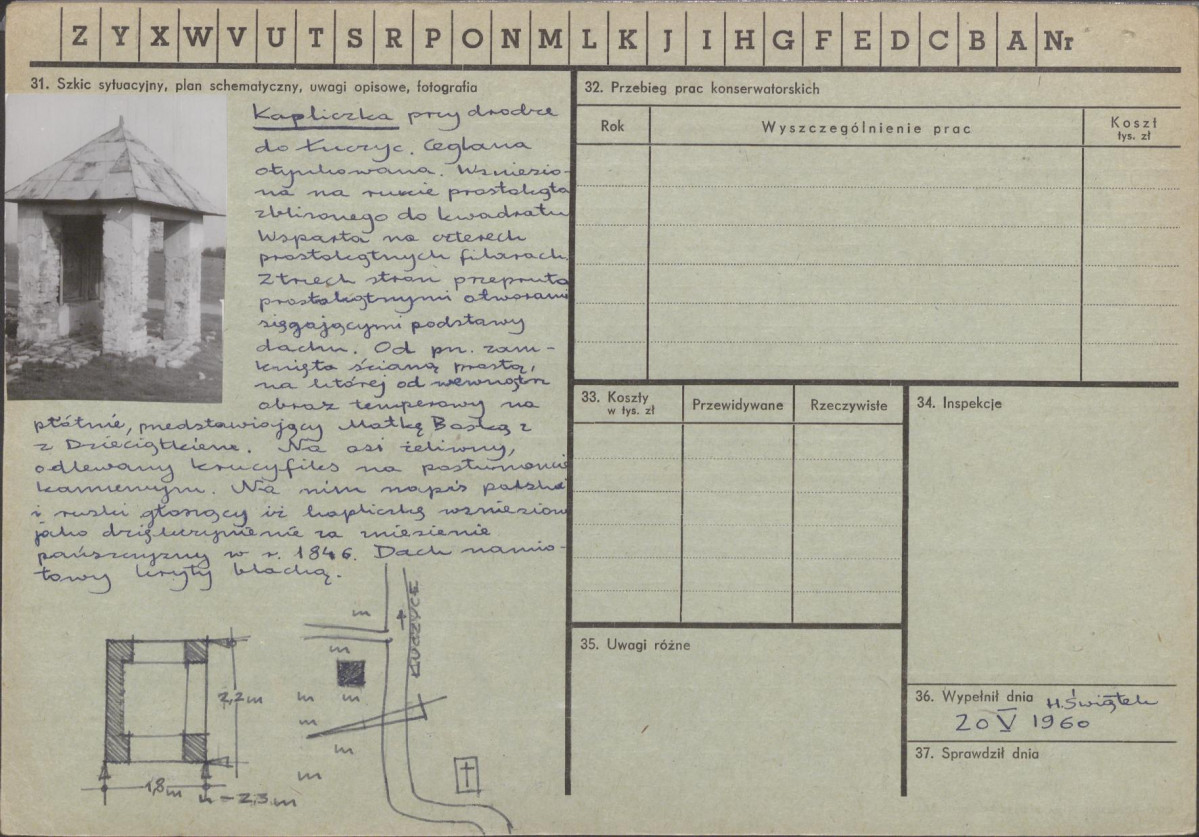 Z Y X W V U T S R P O N M L K J I H G F E D C B A Nr
31. Szkic sytuacyjny, plan schematyczny, uwagi opisowe, fotografia
Kapliczka przy drodze
do Łuczyc. Ceglana
otynkowana. Wzniesio-
na na rzucie prostokąta
zbliżonego do kwadratu
Wsparta na czterech
prostokątnych filarach.
Z trzech stron przepruta
prostokątnymi otworami
sięgającymi podstawy
dachu. Od pn. zam-
knięta ścianą prostą,
na której od wewnątrz
obraz temperowy na
płótnie, przedstawiający Matkę Boską z
z Dzieciątkiem. Na osi żeliwny,
odlewany krucyfiks na postumencie
kamiennym. Na nim napis polski
i ruski głoszący iż kapliczkę wzniesiono
jako dziękczynienie za zniesienie
pańszczyzny w r. 1846. Dach namio-
towy kryty blachą.
2,2 m
1,8 m
h - 2,3 m
ŁUCZYCE
m
m
m
m
m
m
m
32. Przebieg prac konserwatorskich
Rok
Wyszczególnienie prac
Koszt
tys. zł
33. Koszty
w tys. zł
Przewidywane
Rzeczywiste
34. Inspekcje
35. Uwagi różne
36. Wypełnił dnia H. Świątek
20 V 1960
37. Sprawdził dnia